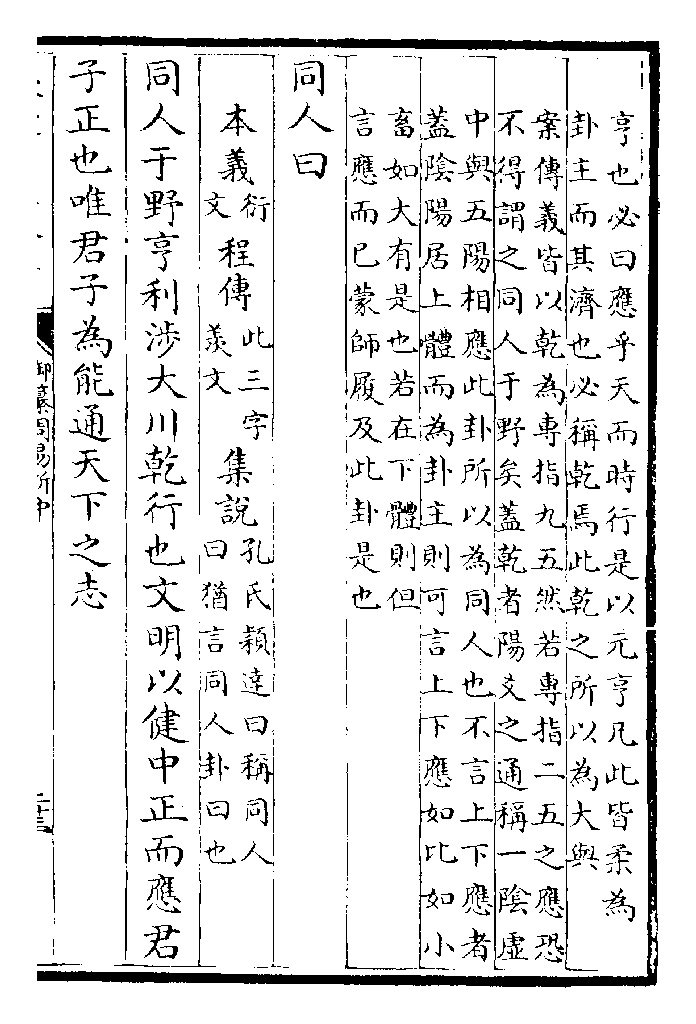 亨也必曰應乎天而時行是以元亨凡此皆柔為
卦主而其濟也必稱乾焉此乾之所以為大與
案傳義皆以乾為專指九五然若專指二五之應恐
不得謂之同人于野矣蓋乾者陽爻之通稱一陰虛
中與五陽相應此卦所以為同人也不言上下應者
蓋陰陽居上體而為卦主則可言上下應如比如小
畜如大有是也若在下體則但
言應而已蒙師履及此卦是也
同人曰
本義衍文程傳此三字羨文集說孔氏穎達曰稱同人曰猶言同人卦曰也
同人于野亨利涉大川乾行也文明以健中正而應君
子正也唯君子為能通天下之志
御纂周易折中
二十三